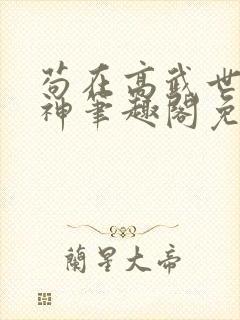 苟在高武世
神笔趣阁免
蘭星大帝